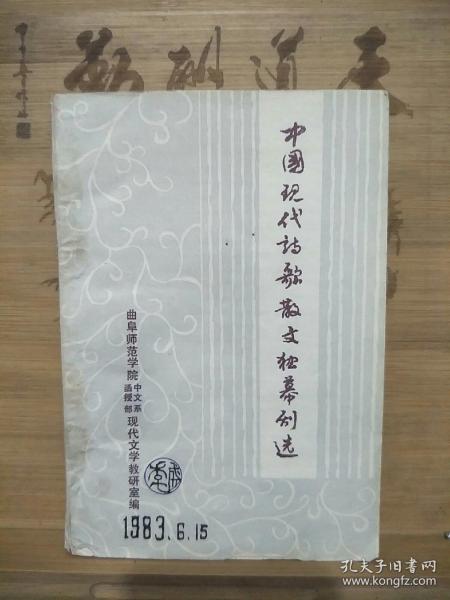 天道酬勤
中國现代詩歌散文独幕剧选
曲阜师范学院中文系函授部现代文学教研室编
1983.6.15
孔夫子旧书网
www.kongfz.com